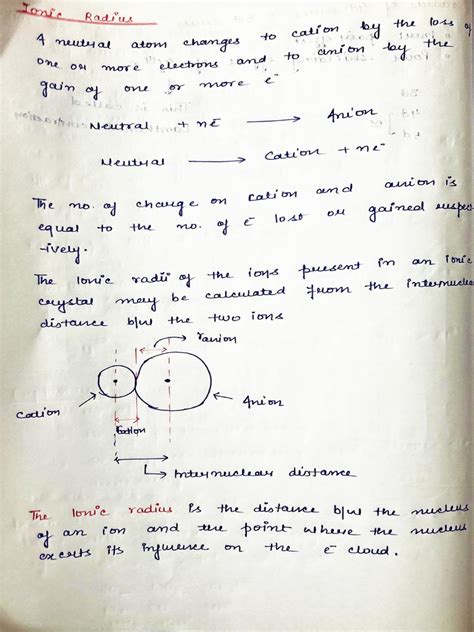 Ionic Radius
A neutral atom changes to cation by the loss of
one or more electrons and to anion by the
gain of one or more e⁻
Neutral + ne⁻ → Anion
Neutral → Cation + ne⁻
The no. of charge on cation and anion is
equal to the no. of e⁻ lost or gained respec
-tively.
The Ionic radii of the ions present in an ionic
crystal may be calculated from the internuclear
distance b/w the two ions
ranion
Cation
Anion
rcation
Internuclear distance
The Ionic radius is the distance b/w the nucleus
of an ion and the point where the nucleus
exerts its influence on the e⁻ cloud.